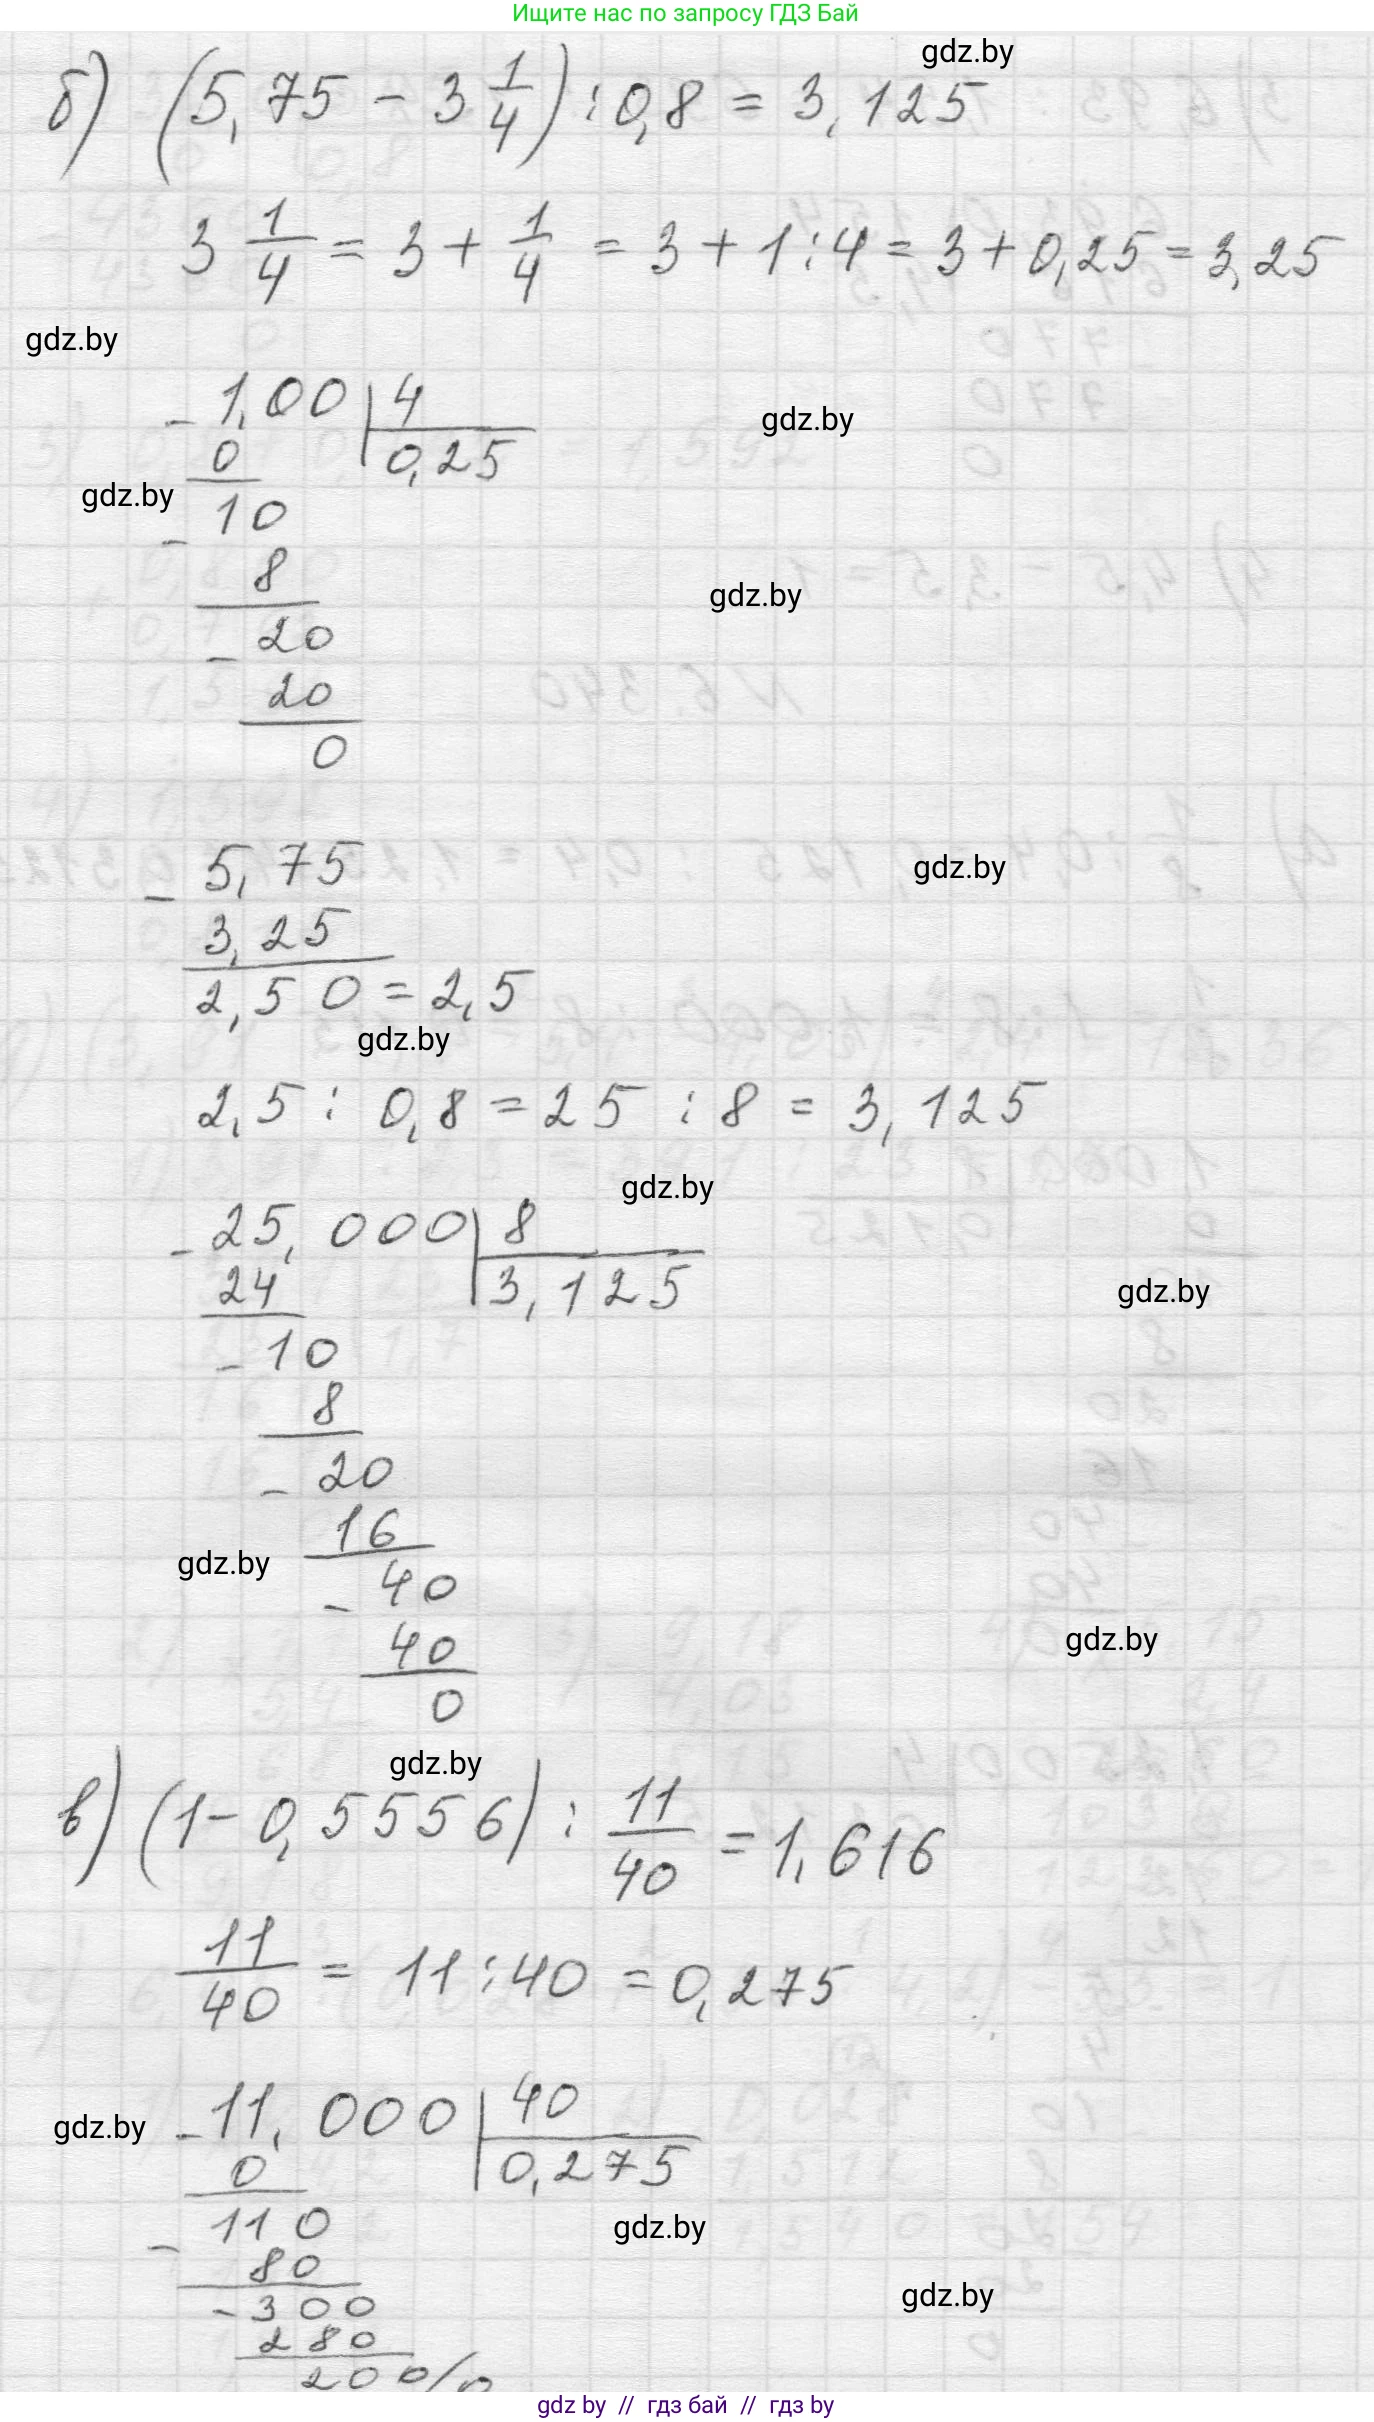 Ищите нас по запросу ГДЗ Бай
gdz.by
б) (5,75 - 3 1/4) : 0,8 = 3,125
3 1/4 = 3 + 1/4 = 3 + 1 : 4 = 3 + 0,25 = 3,25
gdz.by
- 1,00 | 4
gdz.by
0 | 0,25
gdz.by
- 10
8
gdz.by
- 20
20
0
- 5,75
gdz.by
3,25
2,50 = 2,5
gdz.by
2,5 : 0,8 = 25 : 8 = 3,125
gdz.by
- 25,000 | 8
24 | 3,125
gdz.by
- 10
8
- 20
16
gdz.by
- 40
40
gdz.by
0
gdz.by
в) (1 - 0,5556) : 11/40 = 1,616
11/40 = 11 : 40 = 0,275
- 11,000 | 40
gdz.by
0 | 0,275
- 110
gdz.by
80
- 300
gdz.by
280
200/0
gdz by // гдз бай // гдз by